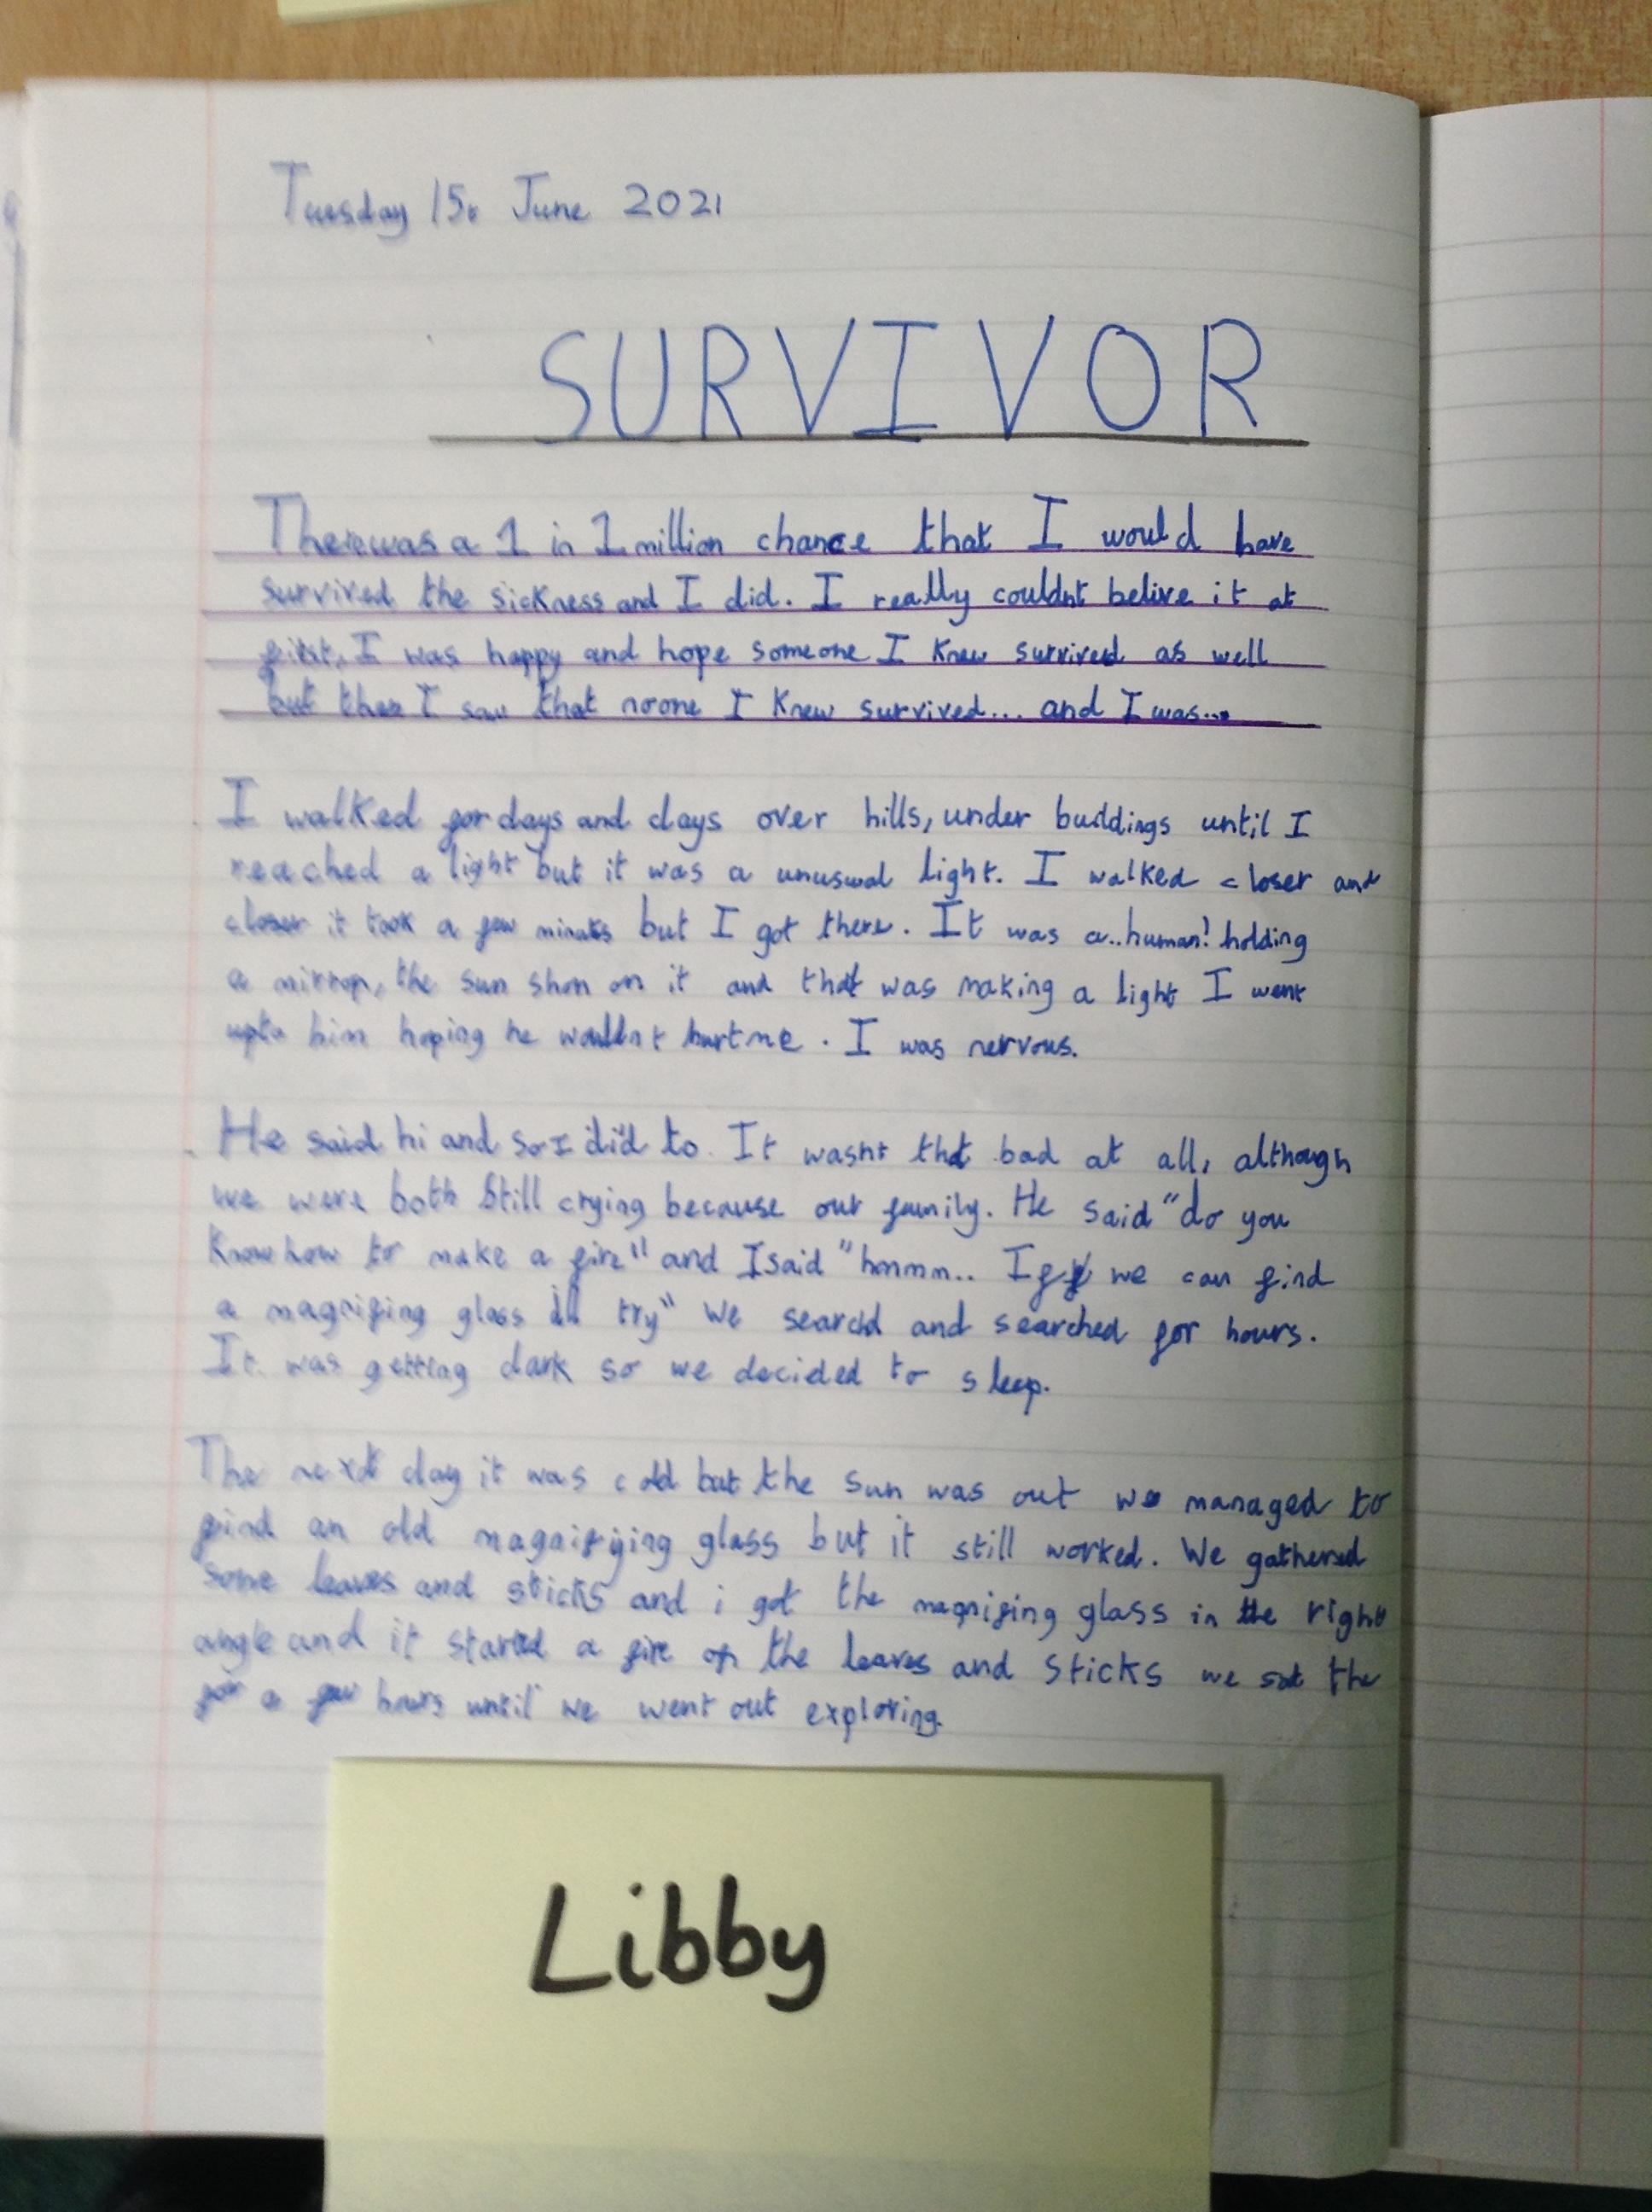 Tuesday 15. June 2021
SURVIVOR
There was a 1 in 1 million chance that I would have
survived the sickness and I did. I really couldnt belive it at
first, I was happy and hope someone I knew survived as well
but then I saw that noone I knew survived... and I was...
I walked for days and days over hills, under buildings until I
reached a light but it was a unusual light. I walked closer and
closer it took a few minates but I got there. It was a..human! holding
a mirror, the sun shon on it and that was making a light I went
upto him hoping he wouldn't hurt me. I was nervous.
He said hi and so I did to. It wasnt that bad at all, although
we were both still crying because our family. He said "do you
know how to make a fire" and I said "hmmm.. If we can find
a magnifing glass ill try" We searchd and searched for hours.
It was getting dark so we decided to sleep.
The next day it was cold but the sun was out we managed to
find an old magnifying glass but it still worked. We gathered
some leaves and sticks and i got the magnifing glass in the right
angle and it started a fire on the leaves and sticks we sat the
for a few hours until we went out exploring.
Libby